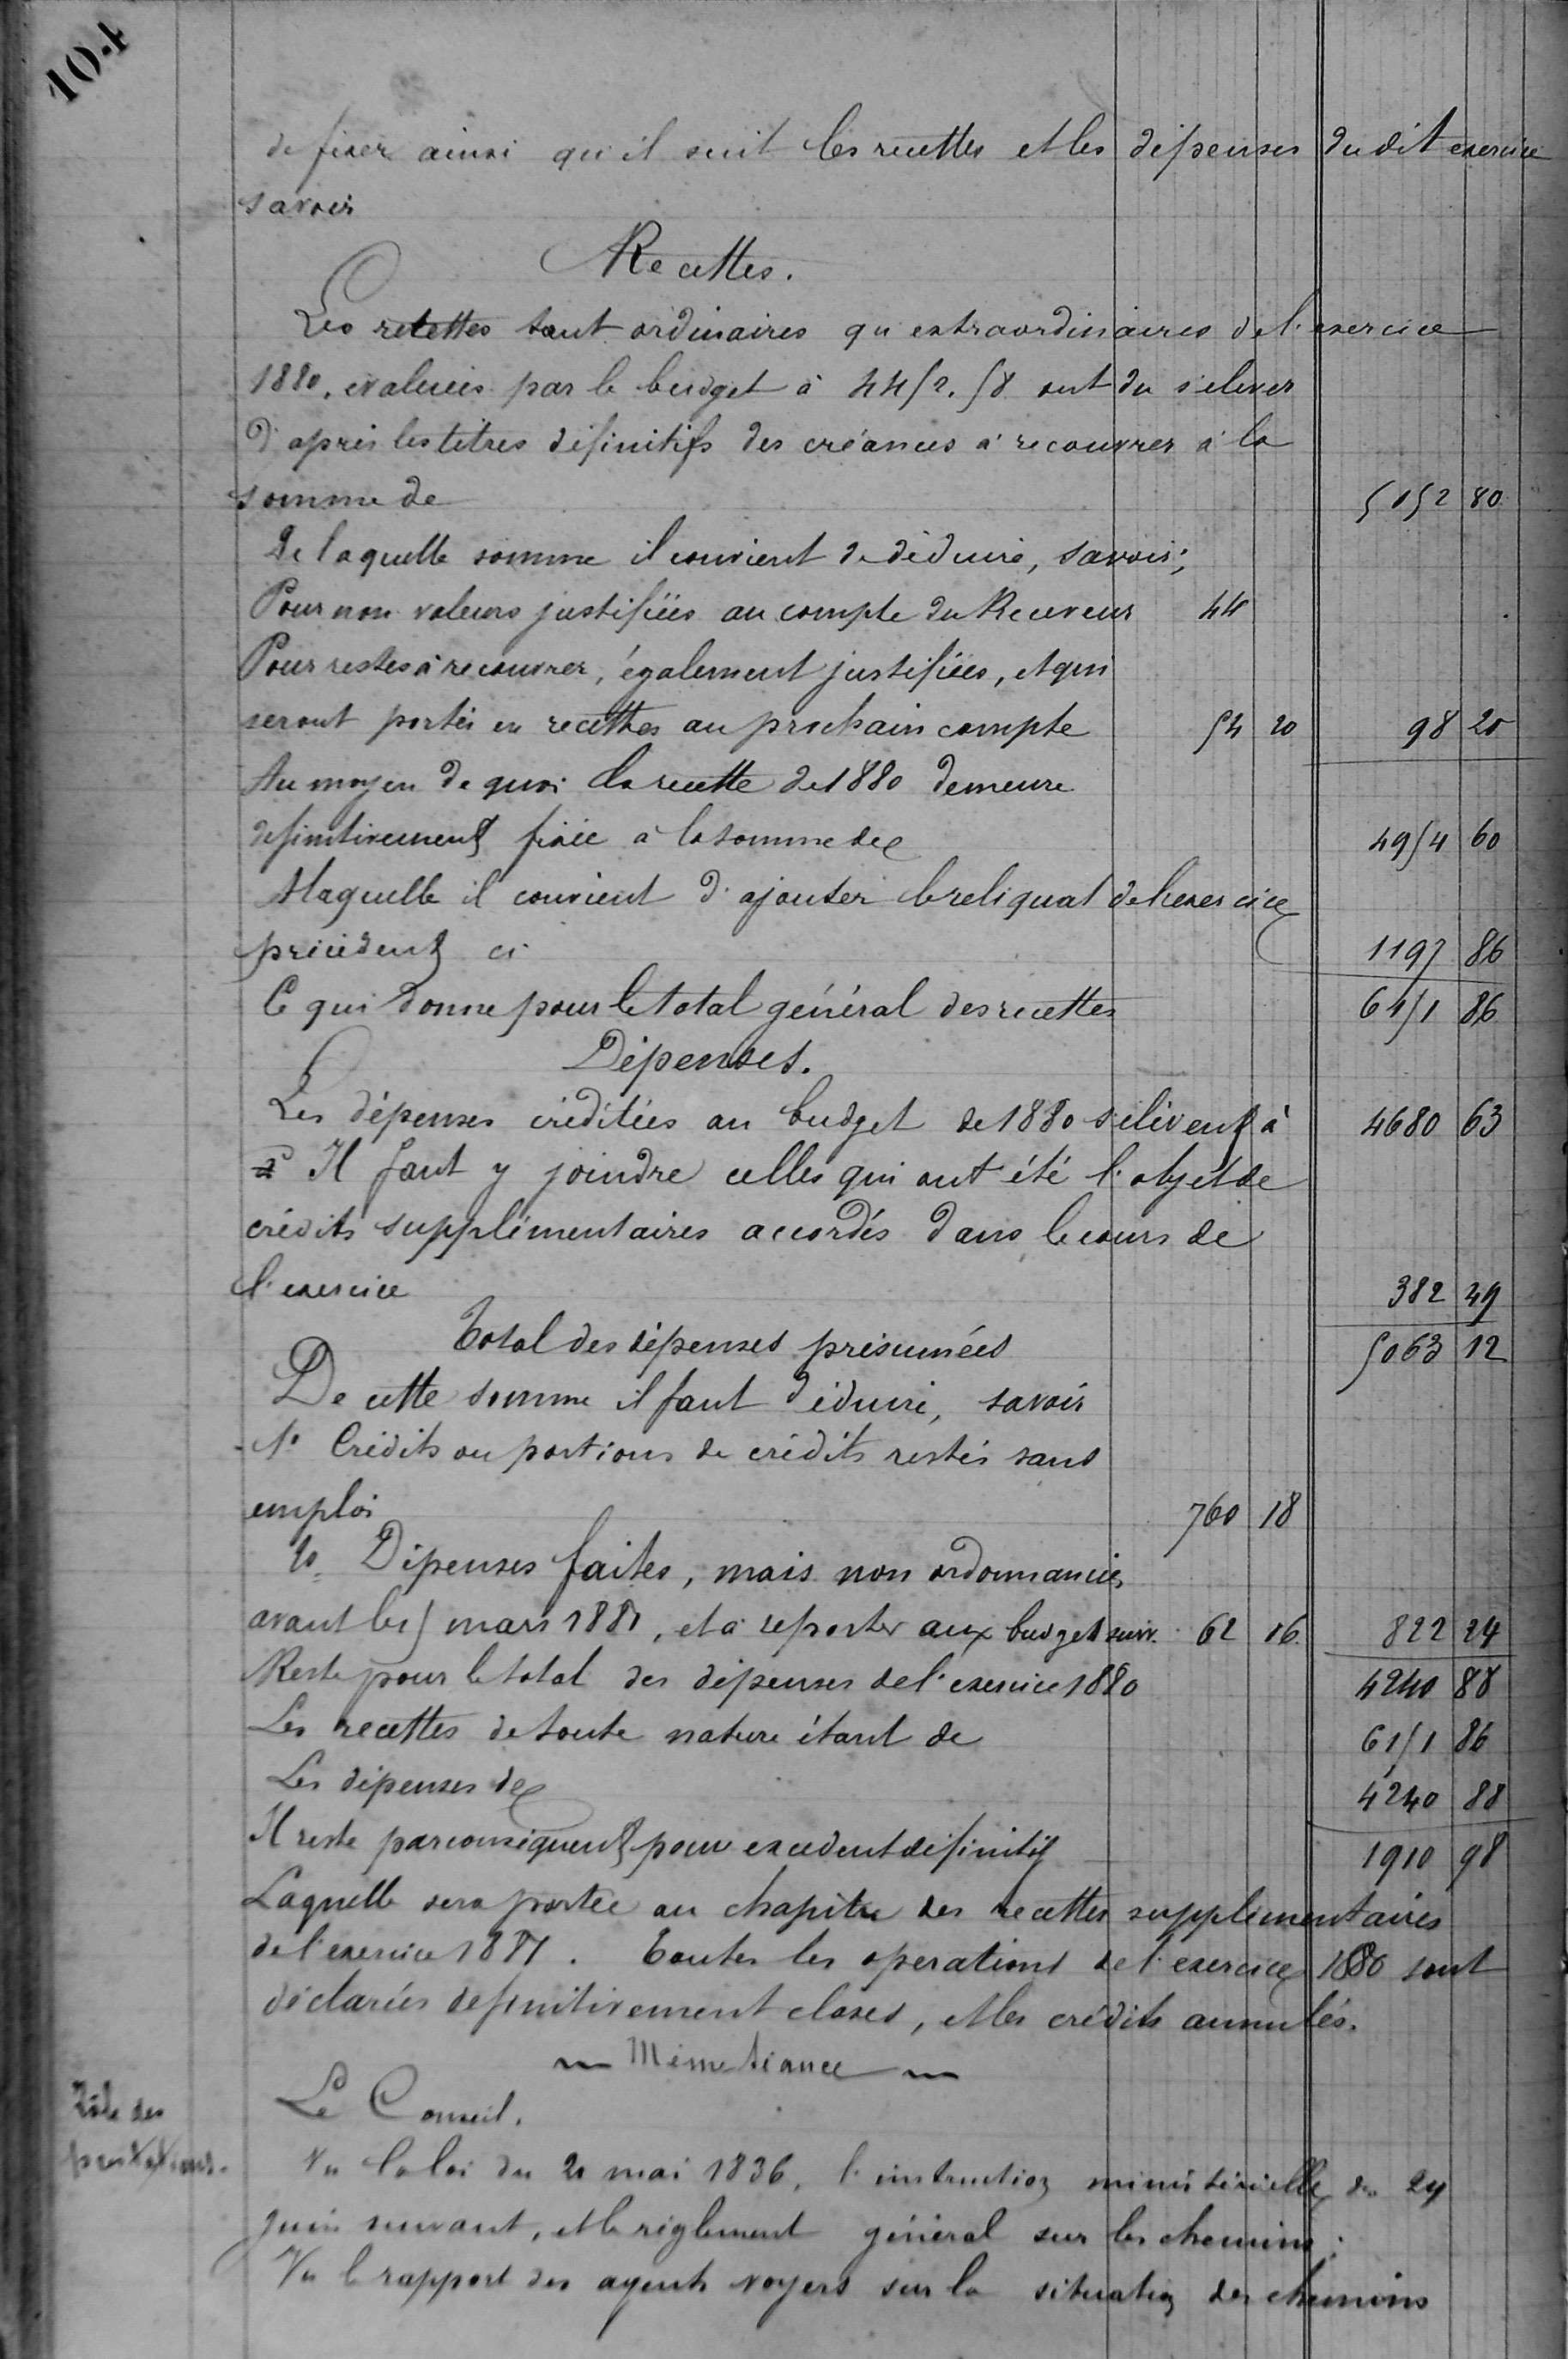 104
de fixer ainsi qu'il suit les recettes et les dépenses du dit exercice
savoir
Recettes.
Les recettes tant ordinaires qu'extraordinaires de l'exercice
1880. evaluées par le budget à 4452.58 ont du s'elever
d'après les titres définitifs des créances à recouvrer à la
somme de 5052 80
De laquelle somme il convient de déduire, savoir;
Pour non valeurs justifiées au compte du Receveur 44
Pour restes à recouvrer, également justifiées, et qui
seront portés en recettes au prochain compte 54 20 98 20
Au moyen de quoi la recette de 1880 demeure
definitivement fixée à la somme de 4954 60
A laquelle il convient d'ajouter le reliquat de l'exercice
précédent ci 1197 86
Ce qui donne pour le total général des recettes 6151 86
Dépenses.
Les dépenses créditées au budget de 1880 s'elévent à 4680 63
Il faut y joindre celles qui ont été l'objet de
crédits supplémentaires accordés dans le cours de
l'exercice 382 49
Total des dépenses présumées 5063 12
De cette somme il faut déduire, savoir
1º Crédits ou portions de crédits restés sans
emploi 760 18
2º Dépenses faites, mais non ordonnancées
avant le 15 mars 1881, et à reporter aux budgets suiv. 62 06 822 24
Reste pour le total des dépenses de l'exercice 1880 4240 88
Les recettes de toute nature étant de 6151 86
Les dépenses de 4240 88
Il reste par conséquent pour excedent définitif 1910 98
Laquelle sera portée au chapitre des recettes supplementaires
de l'exercice 1881. Toutes les operations de l'exercice 1880 sont
déclarées definitivement closes, et les crédits annulés.
~ Même séance ~
Rôle des
prestations.
Le Conseil.
Vu la loi du 21 mai 1836, l'instruction ministérielle du 24
juin suivant, et le règlement général sur les chemins;
Vu le rapport des agents voyers sur la situation des chemins